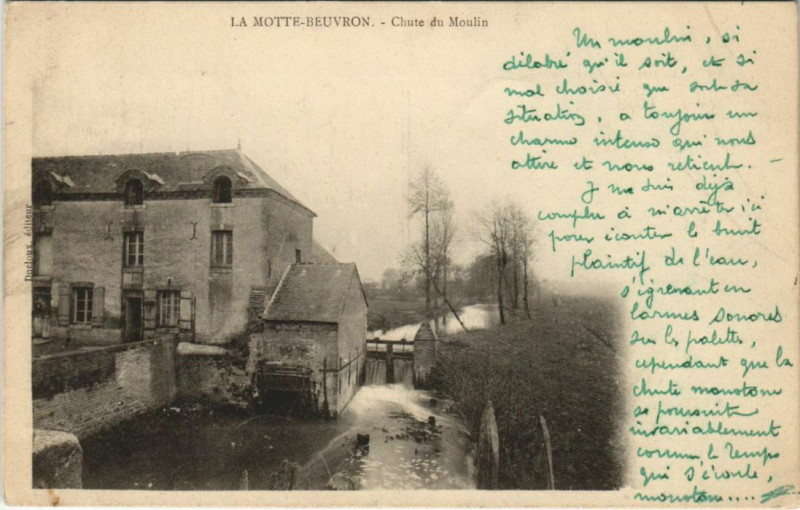 LA MOTTE-BEUVRON. - Chute du Moulin
Un moulin, si
délabré qu'il soit, et si
mal choisie que soit sa
situation, a toujours un
charme intense qui nous
attire et nous retient. -
Je me suis déjà
complu à m'arrêter ici
pour écouter le bruit
plaintif de l'eau,
s'égrenant en
larmes sonores
sur les palettes,
cependant que la
chute monotone
se poursuit
invariablement
comme le temps
qui s'écoule,
monotone....
Duchoux, éditeur